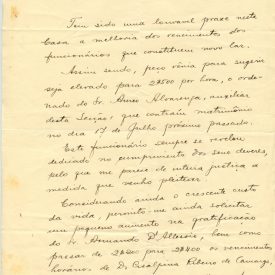 Tem sido uma louvavel praxe nesta
Casa a melhoria dos vencimentos dos
funcionários que constituem novo lar.
Assim sendo, peço vênia para sugerir
seja elevado para 2$500 por hora, o orde-
nado do Sr. Alvarenga, auxiliar
desta Secção, que contraiu matrimônio
no dia 17 de Julho próximo passado.
Este funcionário sempre se revelou
dedicado no cumprimento dos seus deveres,
pelo que me parece de inteira justiça a
medida que venho pleitear.
Considerando ainda o crescente custo
da vida, permito-me ainda solicitar
um pequeno aumento na gratificação
do Sr. Armando D'Alessio, bem como
passar de para 2$400 os vencimentos
horários de D. Ribeiro de Camargo,